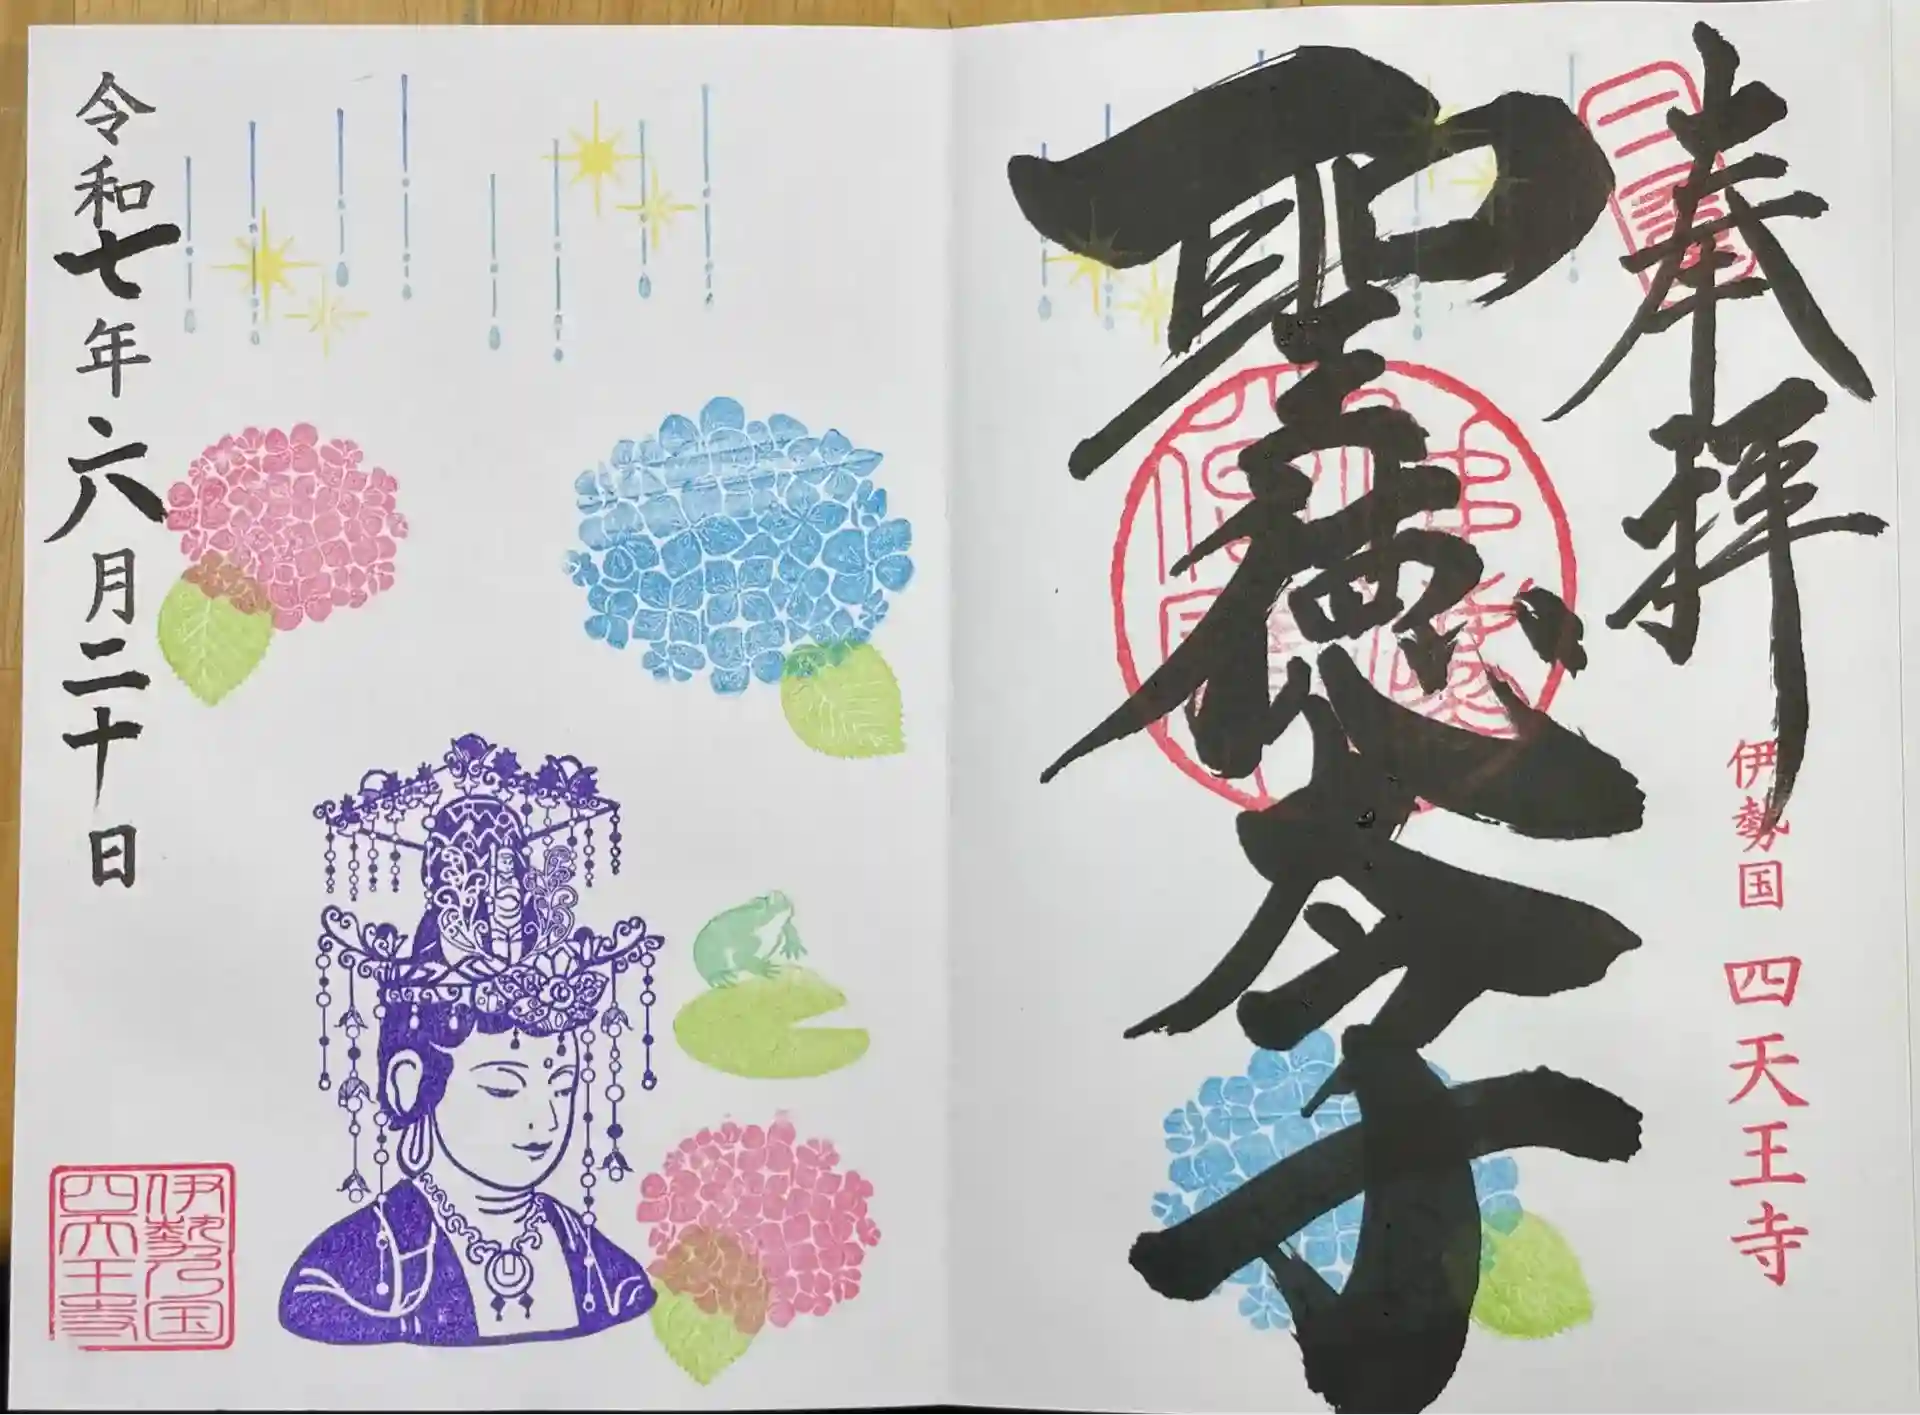 奉拝
聖徳太子
伊勢国 四天王寺
令和七年六月二十日
伊勢乃国
四天王寺